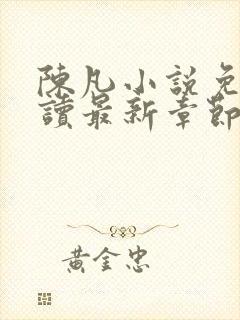 陳凡小說免
讀最新章節
黃金忠